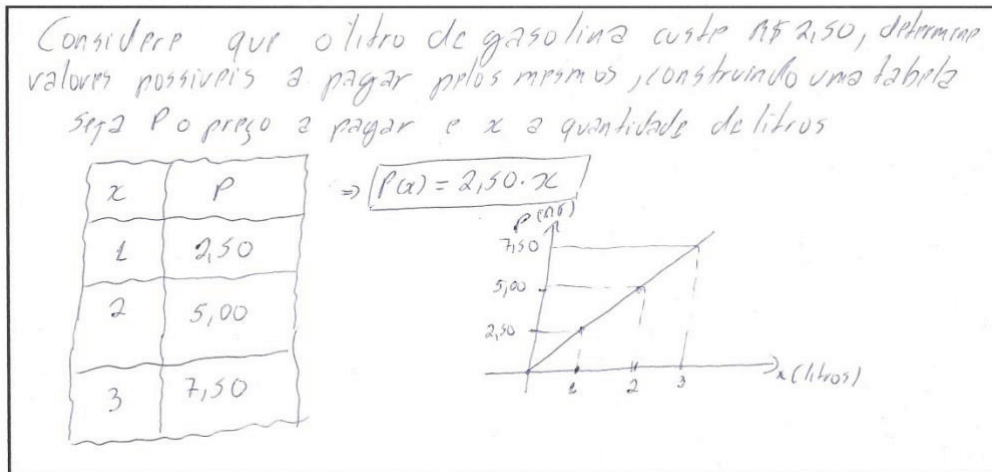 Considere que o litro de gasolina custe R$ 2,50, determine
valores possiveis a pagar pelos mesmos, construindo uma tabela
seja P o preço a pagar e x a quantidade de litros
x P
1 2,50
2 5,00
3 7,50
⇒ P(x) = 2,50 · x
P (R$)
7,50
5,00
2,50
1 2 3 x (litros)